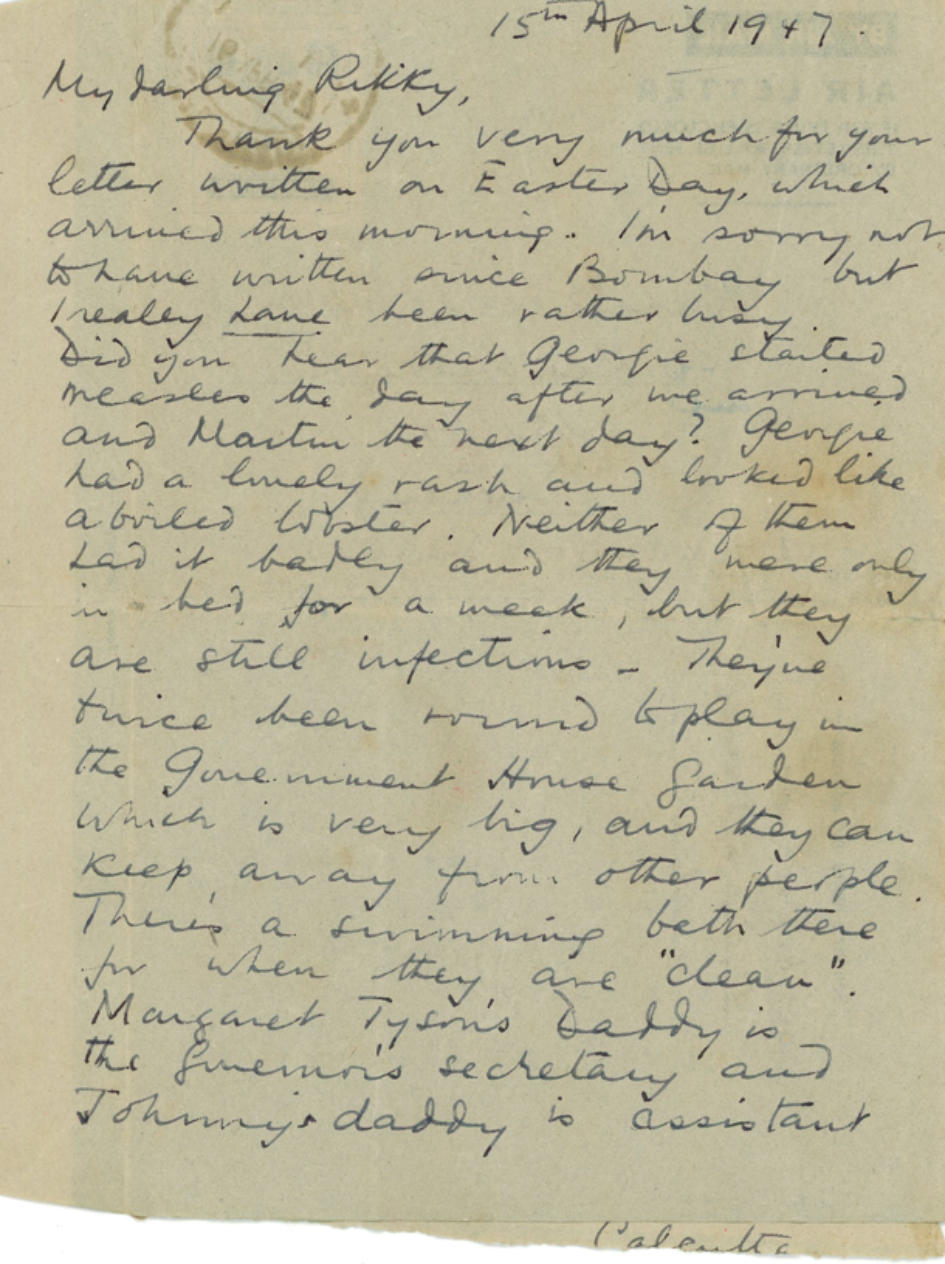 15th April 1947.
My darling Rikky,
Thank you very much for your
letter written on Easter Day, which
arrived this morning. I'm sorry not
to have written since Bombay but
I realey have been rather busy.
Did you hear that Georgie started
measles the day after we arrived
and Martin the next day? Georgie
had a lovely rash and looked like
a boiled lobster. Neither of them
had it badly and they were only
in bed for a week, but they
are still infectious - They've
twice been round to play in
the Government House Garden
which is very big, and they can
keep away from other people.
There's a swimming bath there
for when they are "clean".
Margaret Tyson's Daddy is
the Governor's secretary and
Johnny's daddy is assistant
Calcutta